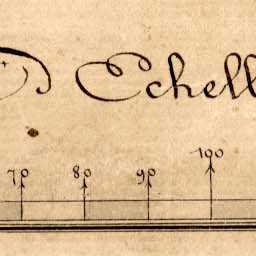 Echell
70 80 90 100